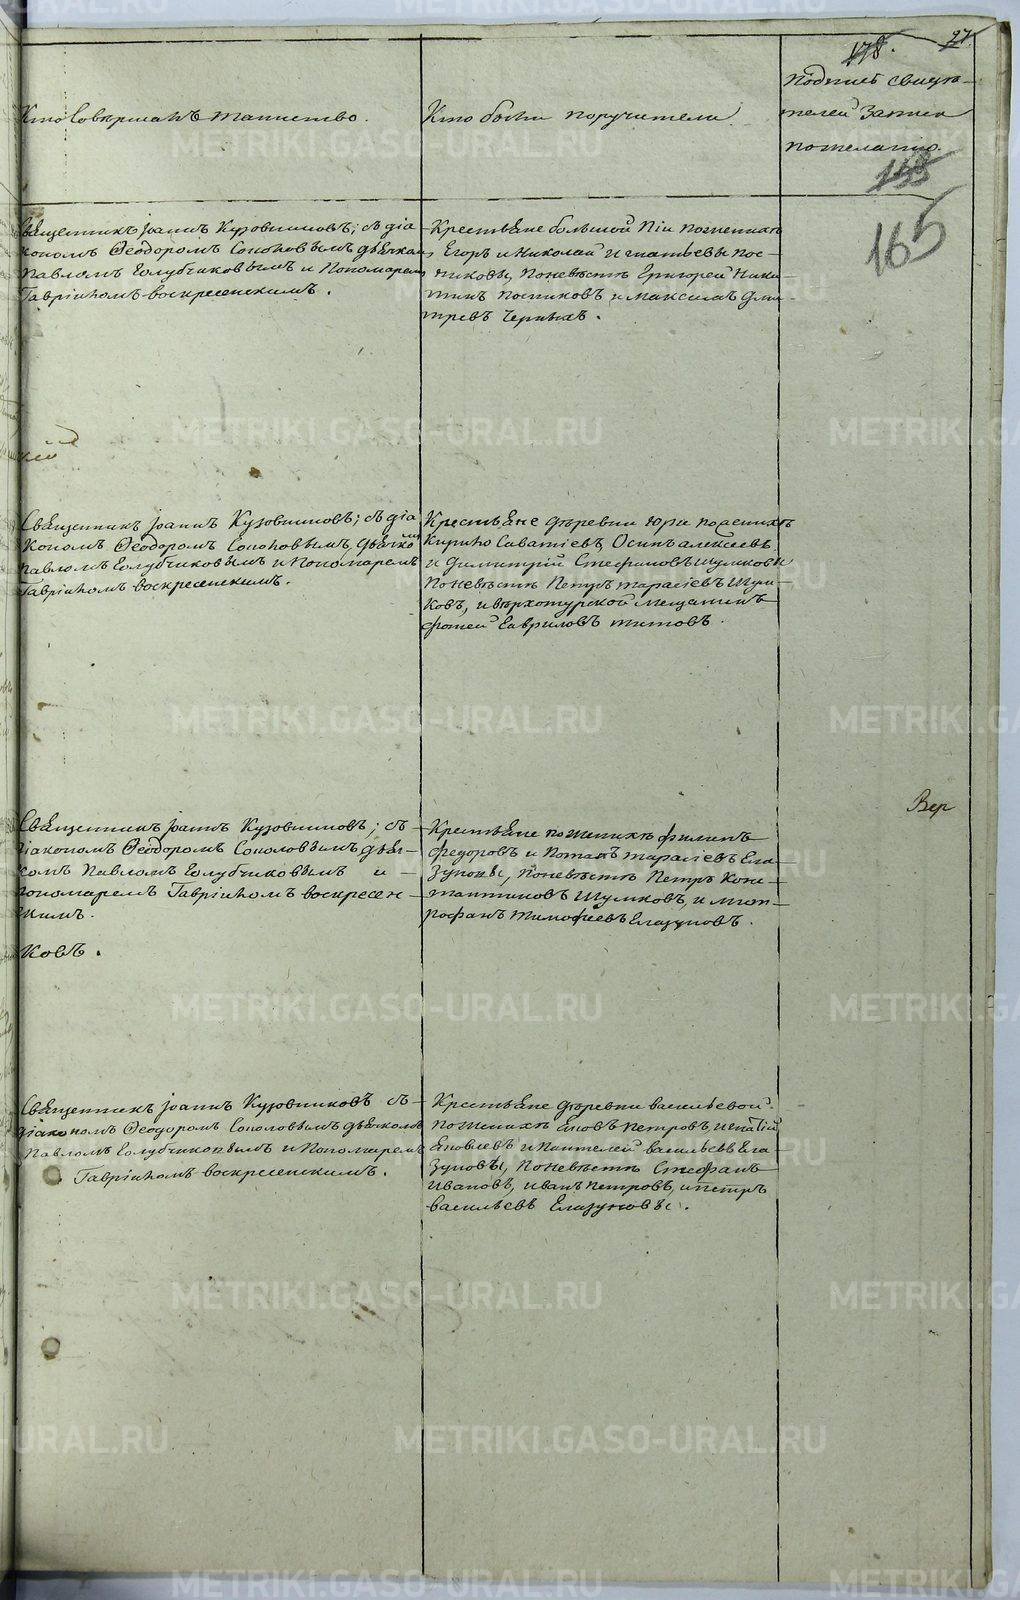 178.
27.
Кто Совершалъ таинство.
Кто были поручители.
Подписѣ свидѣ-
телей Записи
по желанию.
165
Священникъ Іоаннъ Кузовниковъ; съ діа
кономъ Ѳеодоромъ Соколовымъ дьячкомъ
Павломъ Голубчиковымъ и Пономаремъ
Гавріиломъ воскресенскимъ.
Крестьяне большой Піи по женихѣ
Егоръ и Николай Игнатьевы Пос-
никовы, по невѣстѣ Григорей Ники-
тинъ Посниковъ и Максимъ Дми-
тревъ Черныхъ.
Священникъ Іоаннъ Кузовниковъ; съ діа
кономъ Ѳеодоромъ Соколовымъ, дьячкомъ
Павломъ Голубчиковымъ и Пономаремъ
Гавріиломъ воскресенскимъ.
Крестьяне деревни Юри по женихѣ
Кирило Саватіевъ, Осипъ алексеевъ
и Димитрій Стефановъ Шумковы
по невѣстѣ Петръ тарасіевъ Шум-
ковъ, и верхотурской мещанинъ
фотей Гавриловъ титовъ.
Вер
Священникъ Іоаннъ Кузовниковъ; съ
діакономъ Ѳеодоромъ Соколовымъ дьяч-
комъ Павломъ Голубчиковымъ и
пономаремъ Гавріиломъ воскресен
скимъ.
ковъ.
Крестьяне по женихѣ филипъ
федоровъ и Потапъ тарасіевъ Гла-
зуновы, по невѣстѣ Петръ Конс-
тантиновъ Шумковъ, и мит-
рофанъ тимофеевъ Глазуновъ.
Священникъ Іоаннъ Кузовниковъ съ
діакономъ Ѳеодоромъ Соколовымъ дьячкомъ
Павломъ Голубчиковымъ и Пономаремъ
Гавріиломъ воскресенскимъ.
Крестьяне деревни васильевой
по женихѣ Яковъ Петровъ, игнатій
Яковлевъ и Пантелей васильевъ Гла
зуновы, по невѣстѣ Стефанъ
Ивановъ, иванъ Петровъ, и петръ
васильевъ Глазуновы.
METRIKI.GASO-URAL.RU